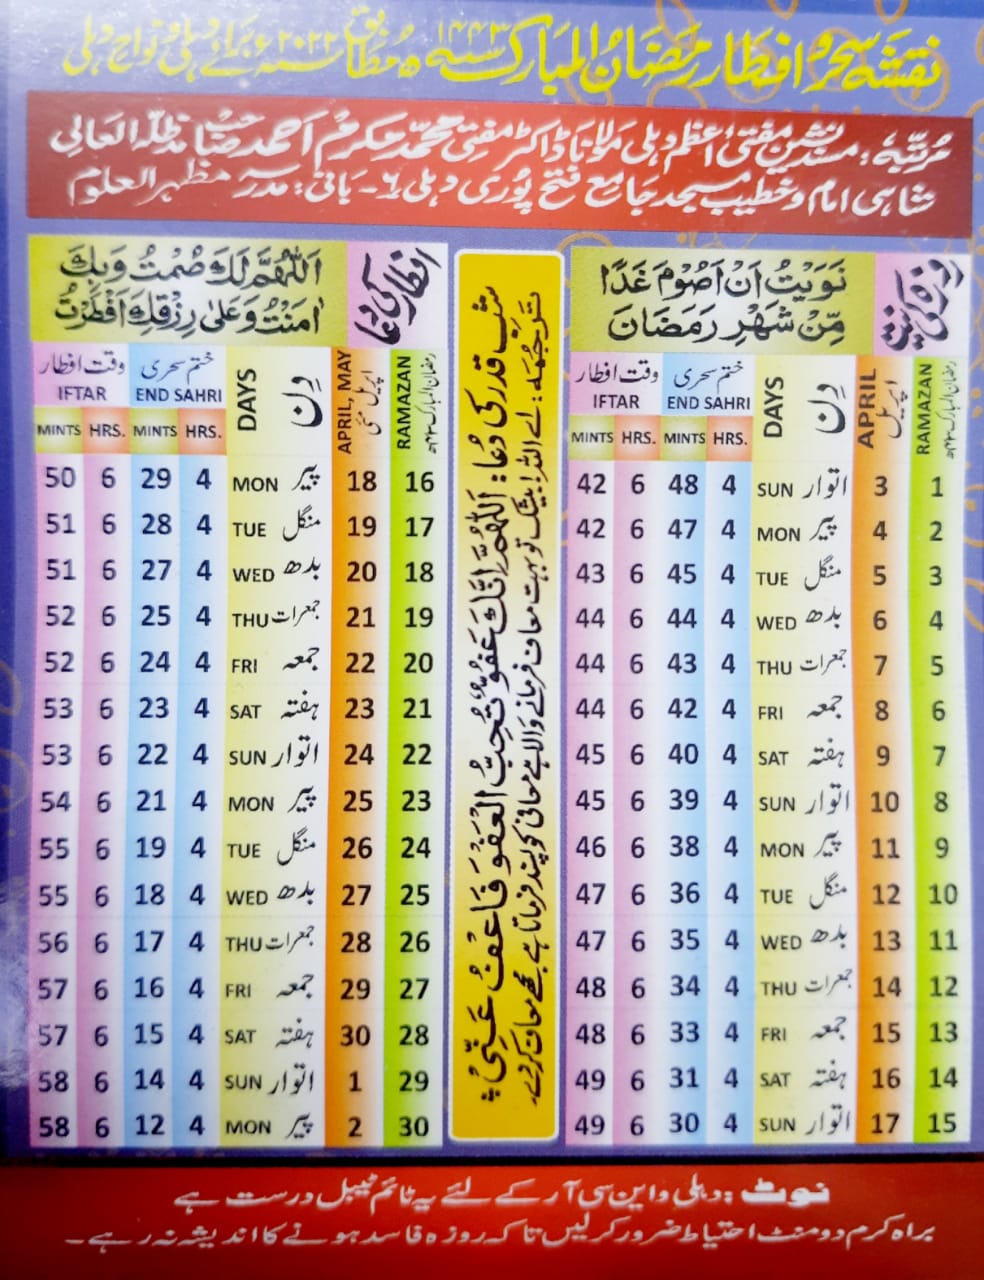 نقشہ سحر و افطار رمضان المبارک سنہ ۱۴۴۳ھ مطابق سنہ ۲۰۲۲ء برائے دہلی و نواح دہلی
مرتبہ: مسند نشین مفتیٔ اعظم دہلی مولانا ڈاکٹر مفتی محمد مکرم احمد صاحب مدظلہ العالی
شاہی امام و خطیب مسجد جامع فتح پوری دہلی ۶۔ بانی: مدرسہ مظہر العلوم
روزہ کی نیت
نَوَيْتُ اَنْ اَصُوْمَ غَدًا
مِّنْ شَهْرِ رَمَضَانَ
رمضان المبارک ۱۴۴۳ھ RAMAZAN
اپریل APRIL
دِن DAYS
ختم سحری END SAHRI
وقت افطار IFTAR
MINTS HRS. MINTS HRS.
42 6 48 4 SUN اتوار 3 1
42 6 47 4 MON پیر 4 2
43 6 45 4 TUE منگل 5 3
44 6 44 4 WED بدھ 6 4
44 6 43 4 THU جمعرات 7 5
44 6 42 4 FRI جمعہ 8 6
45 6 40 4 SAT ہفتہ 9 7
45 6 39 4 SUN اتوار 10 8
46 6 38 4 MON پیر 11 9
47 6 36 4 TUE منگل 12 10
47 6 35 4 WED بدھ 13 11
48 6 34 4 THU جمعرات 14 12
48 6 33 4 FRI جمعہ 15 13
49 6 31 4 SAT ہفتہ 16 14
49 6 30 4 SUN اتوار 17 15
شب قدر کی دُعا: اَللّٰهُمَّ اِنَّكَ عَفُوٌّ تُحِبُّ الْعَفْوَ فَاعْفُ عَنِّيْ
ترجمہ: اے اللہ! بیشک تو بہت معاف فرمانے والا ہے معافی کو پسند فرماتا ہے مجھے معاف کر دے۔
افطار کی دعا
اَللّٰهُمَّ لَكَ صُمْتُ وَبِكَ
اٰمَنْتُ وَعَلٰى رِزْقِكَ اَفْطَرْتُ
رمضان المبارک ۱۴۴۳ھ RAMAZAN
اپریل مئی APRIL, MAY
دِن DAYS
ختم سحری END SAHRI
وقت افطار IFTAR
MINTS HRS. MINTS HRS.
50 6 29 4 MON پیر 18 16
51 6 28 4 TUE منگل 19 17
51 6 27 4 WED بدھ 20 18
52 6 25 4 THU جمعرات 21 19
52 6 24 4 FRI جمعہ 22 20
53 6 23 4 SAT ہفتہ 23 21
53 6 22 4 SUN اتوار 24 22
54 6 21 4 MON پیر 25 23
55 6 19 4 TUE منگل 26 24
55 6 18 4 WED بدھ 27 25
56 6 17 4 THU جمعرات 28 26
57 6 16 4 FRI جمعہ 29 27
57 6 15 4 SAT ہفتہ 30 28
58 6 14 4 SUN اتوار 1 29
58 6 12 4 MON پیر 2 30
نوٹ: دہلی و این سی آر کے لئے یہ ٹائم ٹیبل درست ہے
براہ کرم دو منٹ احتیاط ضرور کر لیں تاکہ روزہ فاسد ہونے کا اندیشہ نہ رہے۔